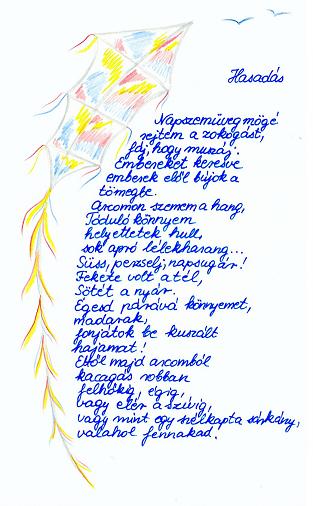 Hasadás
Napszemüveg mögé
rejtem a zokogást,
fáj, hogy muszáj.
Embereket keresve
emberek elől bújok a
tömegbe.
Arcomon szemem a hang,
Tóduló könnyem
helyettetek hull,
sok apró lélekharang...
Süss, perzselj, napsugár!
Fekete volt a tél,
Sötét a nyár.
Égesd párává könnyemet,
madarak,
fonjátok be kuszált
hajamat!
Ettől majd arcomból
kacagás robban
felhőkig, égig,
vagy elér a szívig,
vagy mint egy szélkapta sárkány,
valahol fennakad.